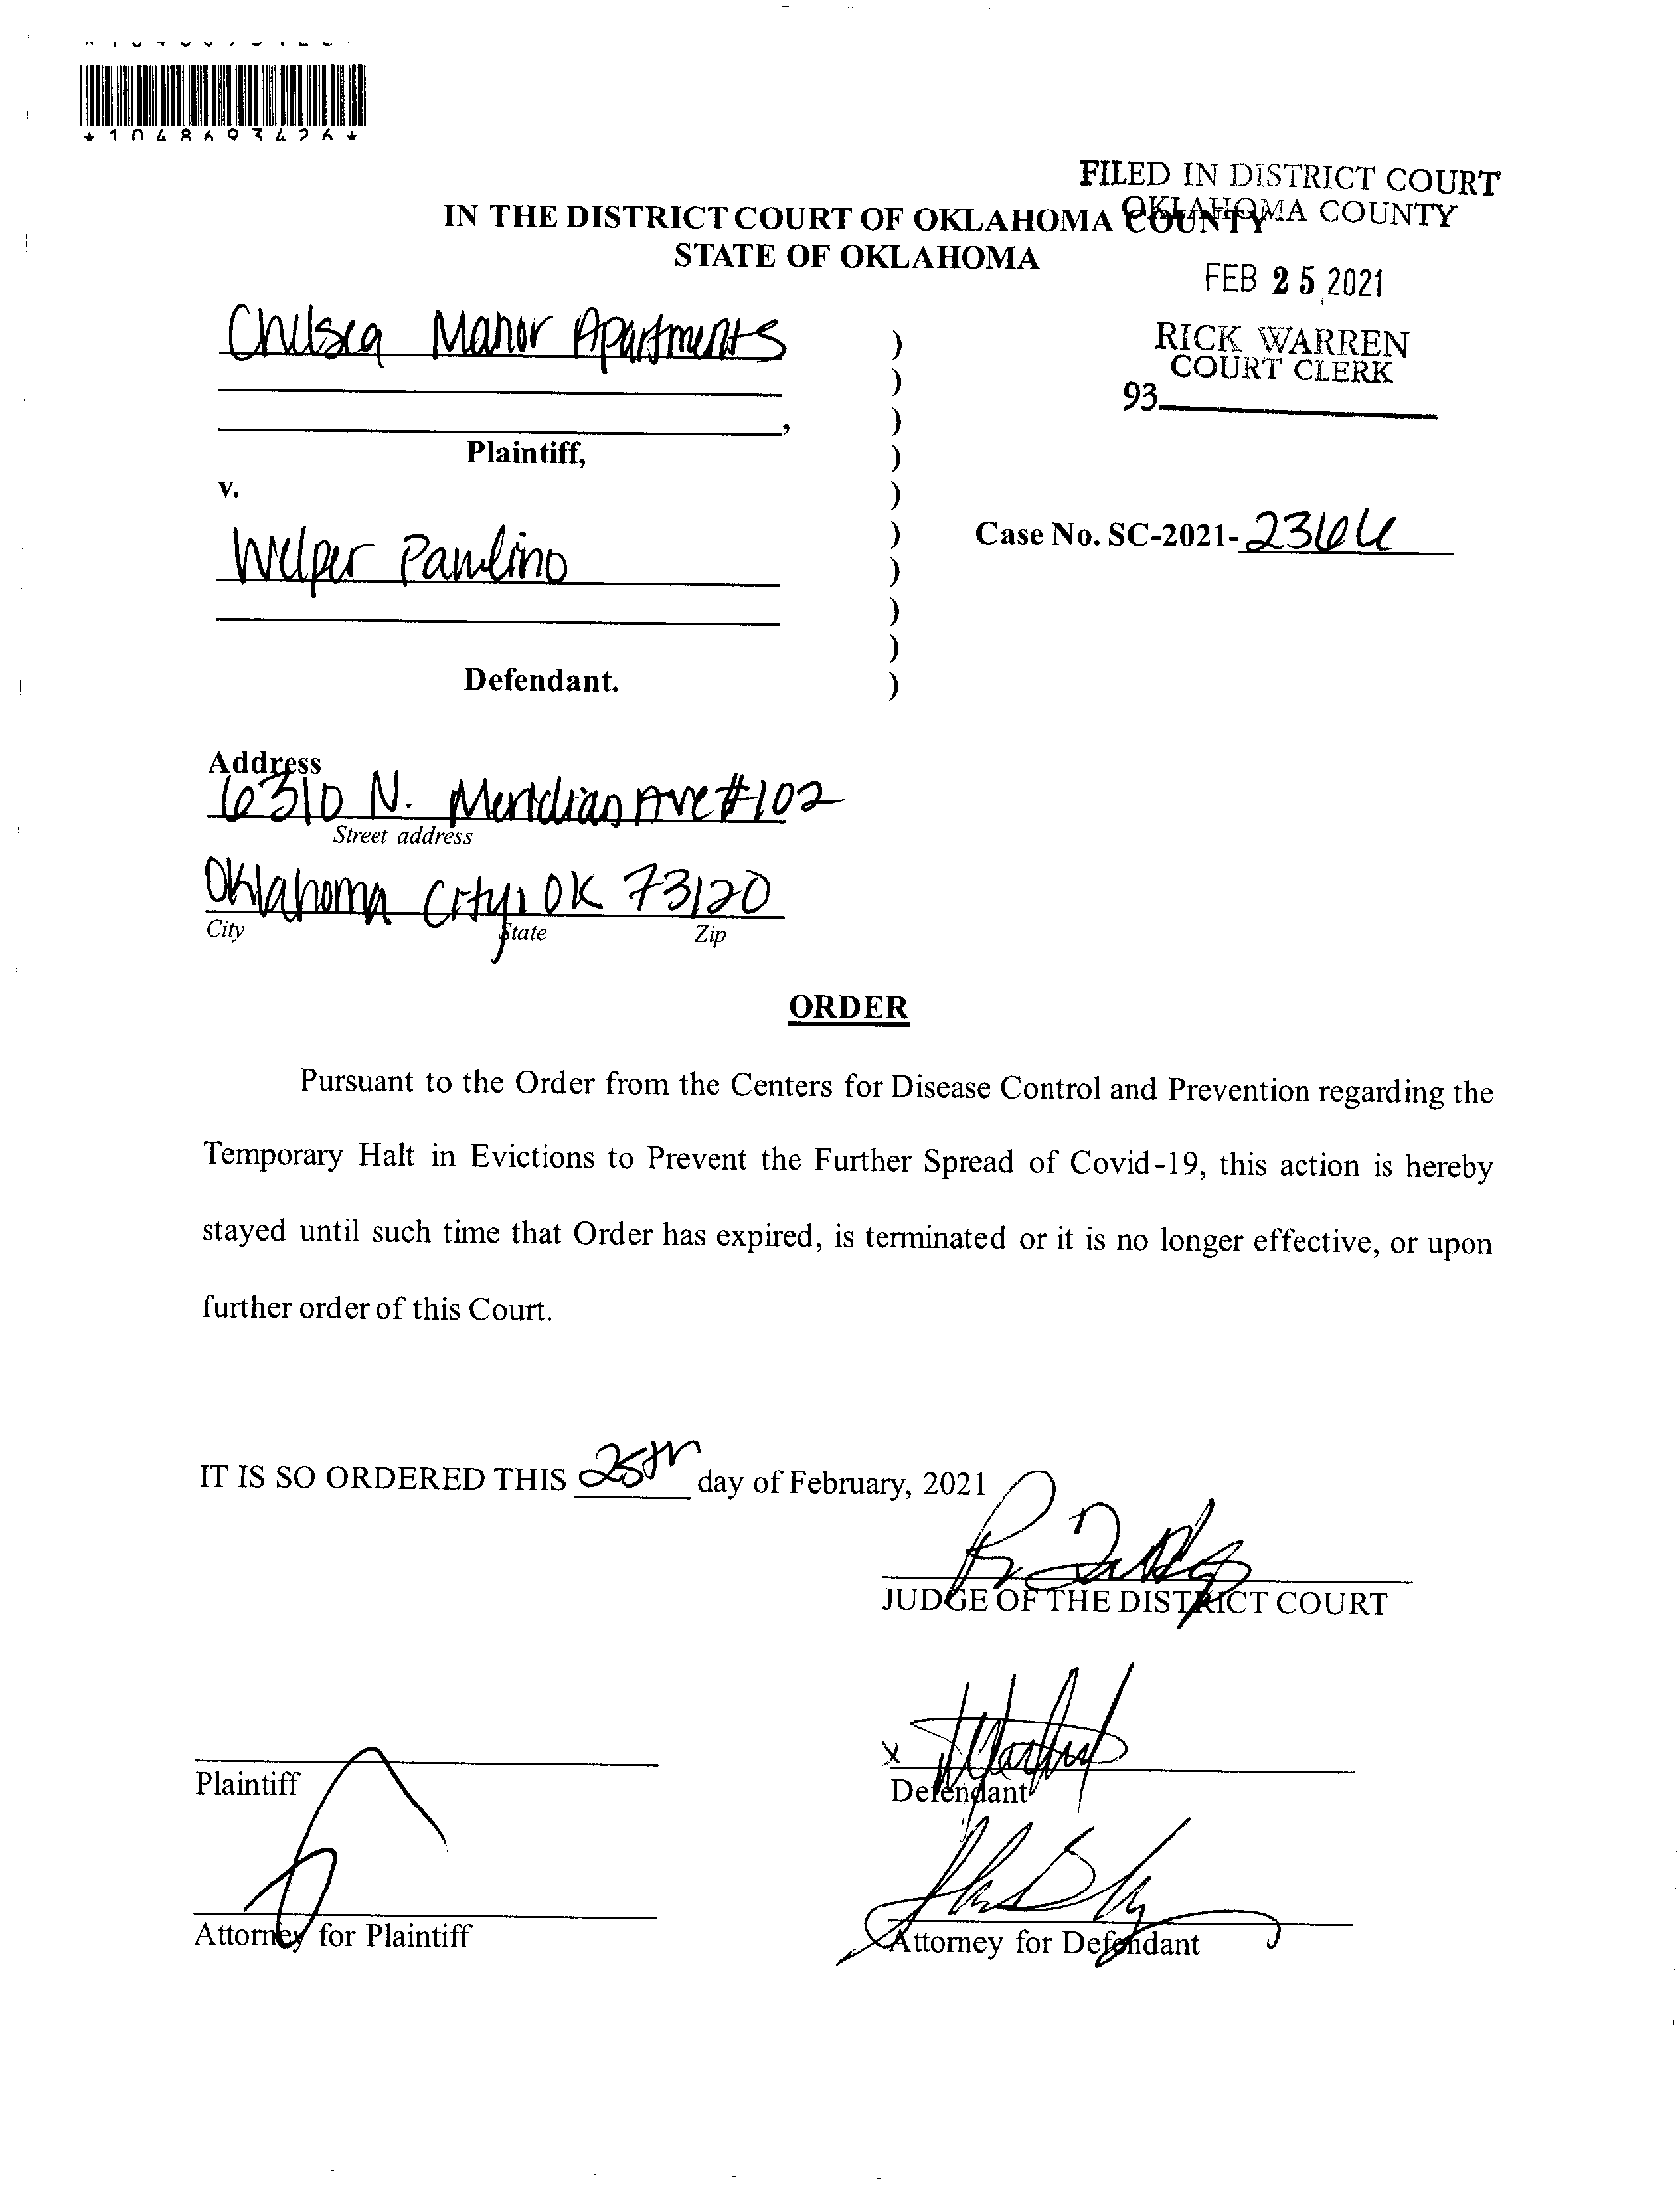 *1048693426*
FILED IN DISTRICT COURT
OKLAHOMA COUNTY
IN THE DISTRICT COURT OF OKLAHOMA COUNTY
STATE OF OKLAHOMA
FEB 25 2021
RICK WARREN
COURT CLERK
93
Chelsea Manor Apartments
,
Plaintiff,
v.
Case No. SC-2021-2366
Welper Pawlino
Defendant.
Address
6310 N. Meridian Ave #102
Street address
Oklahoma City, OK 73120
City State Zip
ORDER
Pursuant to the Order from the Centers for Disease Control and Prevention regarding the
Temporary Halt in Evictions to Prevent the Further Spread of Covid-19, this action is hereby
stayed until such time that Order has expired, is terminated or it is no longer effective, or upon
further order of this Court.
IT IS SO ORDERED THIS 25th day of February, 2021
JUDGE OF THE DISTRICT COURT
x
Plaintiff
Defendant
Attorney for Plaintiff
Attorney for Defendant